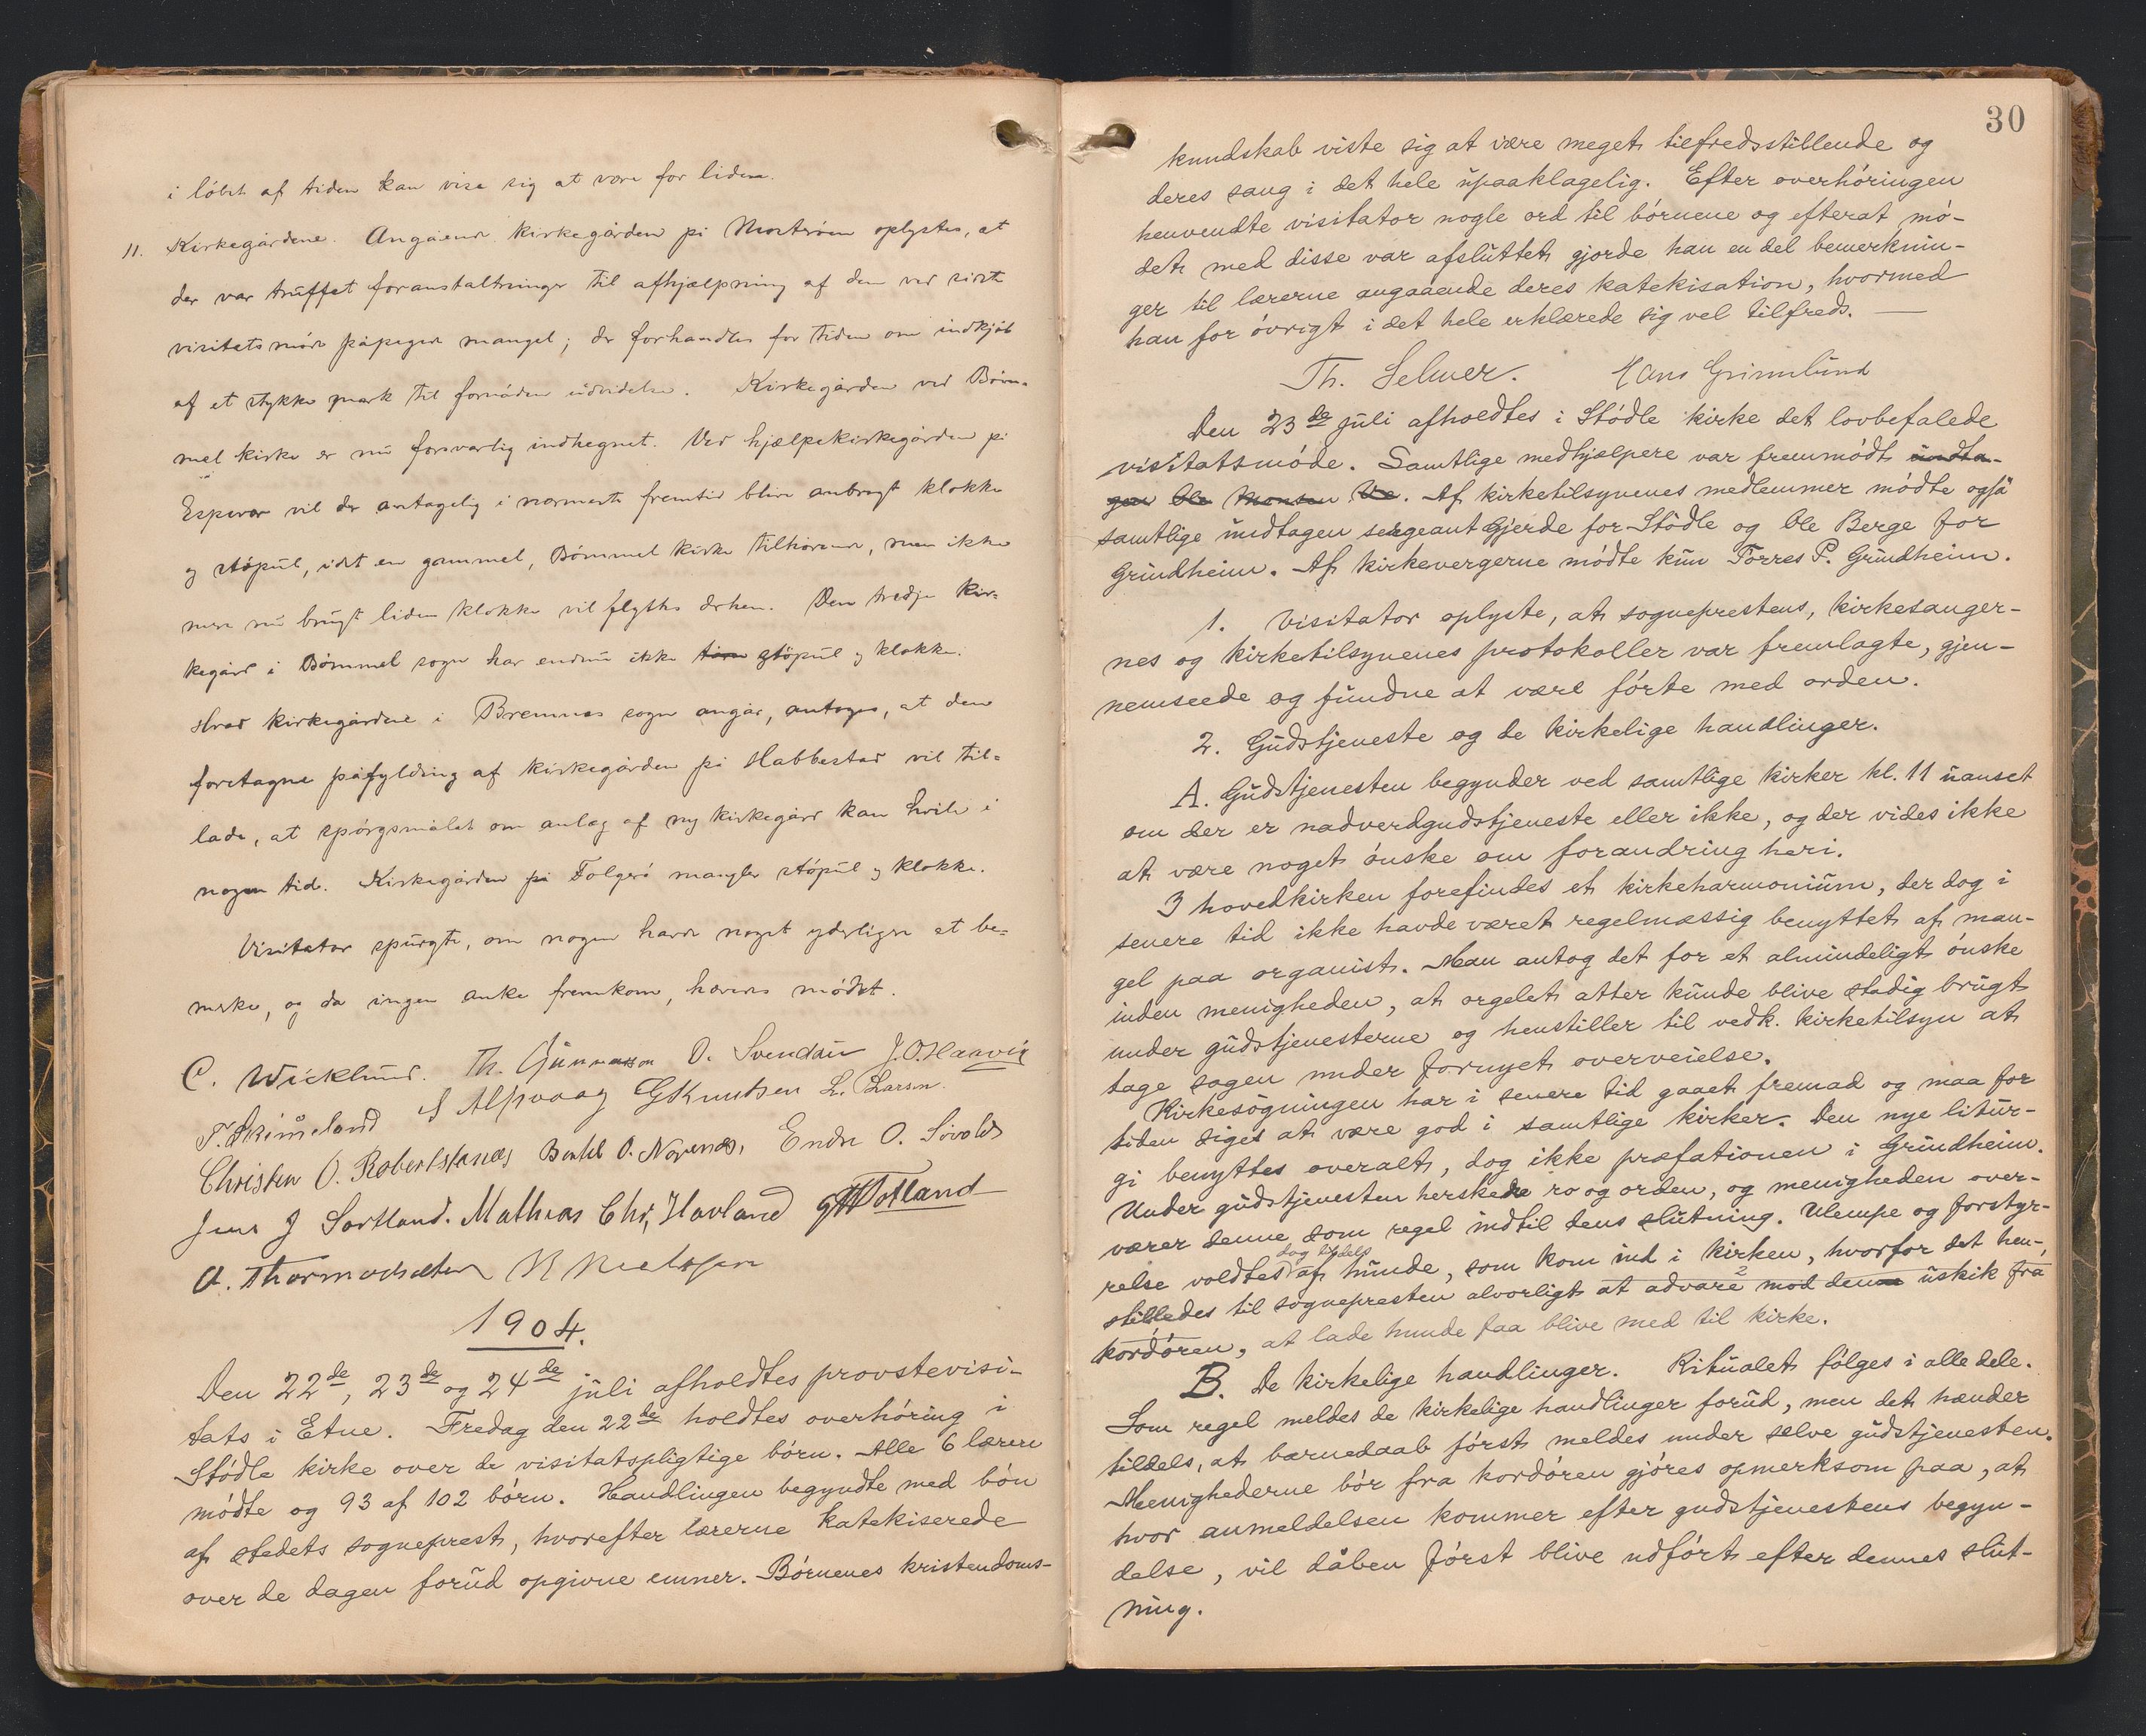 i löbet af tiden kan vise sig at være for liden.
11. Kirkegårdene. Angående kirkegården på Mosterøen oplystes, at
der var truffet foranstaltninger til afhjælpning af den ved sidste
visitatsmöde påpegede mangel; der forhandles for tiden om indkjöb
af et stykke mark til fornöden udvidelse. Kirkegården ved Böm-
mel kirke er nu forsvarlig indhegnet. Ved hjælpekirkegården på
Espevær vil der antagelig i nærmeste fremtid blive anbragt klokke
og stöpul, idet en gammel, Bömmel kirke tilhörende, men ikke
mere nu brugt liden klokke vil flyttes derhen. Den tredje kir-
kegård i Bömmel sogn har endnu ikke stöpul og klokke.
Hvad kirkegårdene i Bremnes sogn angår, antages, at den
foretagne påfylding af kirkegården på Habbestad vil til-
lade, at spörgsmålet om anlæg af ny kirkegård kan hvile i
nogen tid. Kirkegården på Folgerö mangler stöpul og klokke.
Visitator spurgte, om nogen havde noget yderligere at be-
merke, og da ingen anke fremkom, hævedes mödet.
C. Wicklund. Th. Gunnarsson O. Svendsen J. O. Haavig
T. Skimeland S Alfvaag G Knutsen L. Larsen.
Christen O. Robertstanæs Bertel O. Novenæs, Endre O. Sövold
Jens J Sortland. Mathias Chr. Havland G H Totland
A. Thormodsæter N Nielssen
1904.
Den 22de, 23de og 24de juli afholdtes provstevisi-
tats i Etne. Fredag den 22de holdtes overhöring i
Stödle kirke over de visitatspligtige börn. Alle 6 lærere
mödte og 93 af 102 börn. Handlingen begyndte med bön
af stedets sogneprest, hvorefter lærerne katekiserede
over de dagen forud opgivne emner. Börnenes kristendoms-
30
kundskab viste sig at være meget tilfredsstillende og
deres sang i det hele upaaklagelig. Efter overhöringen
henvendte visitator nogle ord til börnene og efterat mö-
det med disse var afsluttet gjorde han en del bemerknin-
ger til lærerne angaaende deres katekisation, hvormed
han for övrigt i det hele erklærede sig vel tilfreds. —
Th. Selmer. Hans Grimnlund
Den 23de juli afholdtes i Stödle kirke det lovbefalede
visitatsmöde. Samtlige medhjælpere var fremmödt undta-
gen Ole Monsen Ve. Af kirketilsynenes medlemmer mödte også
samtlige undtagen sergeant Gjerde for Stödle og Ole Berge for
Grindheim. Af kirkevergerne mödte kun Torres P. Grindheim.
1. Visitator oplyste, at sogneprestens, kirkesanger-
nes og kirketilsynenes protokoller var fremlagte, gjen-
nemseede og fundne at være förte med orden.
2. Gudstjeneste og de kirkelige handlinger.
A. Gudstjenesten begynder ved samtlige kirker kl. 11 uanset
om der er nadverdgudstjeneste eller ikke, og der vides ikke
at være noget önske om forandring heri.
I hovedkirken forefindes et kirkeharmonium, der dog i
senere tid ikke havde været regelmæssig benyttet af man-
gel paa organist. Man antog det for et almindeligt önske
inden menigheden, at orgelet atter kunde blive stadig brugt
under gudstjenesterne og henstiller til vedk. kirketilsyn at
tage sagen under fornyet overveielse.
Kirkesögningen har i senere tid gaaet fremad og maa for
tiden siges at være god i samtlige kirker. Den nye litur-
gi benyttes overalt, dog ikke præfationen i Grindheim.
Under gudstjenesten herskede ro og orden, og menigheden over-
værer denne som regel indtil dens slutning. Ulempe og forstyr-
relse voldtes dog tildels af hunde, som kom ind i kirken, hvorfor det hen-
stilledes til sognepresten alvorligt at advare mod den uskik fra
kordören, at lade hunde faa blive med til kirke.
B. De kirkelige handlinger. Ritualet fölges i alle dele.
Som regel meldes de kirkelige handlinger forud, men det hænder
tildels, at barnedaab först meldes under selve gudstjenesten.
Menighederne bör fra kordören gjöres opmerksom paa, at
hvor anmeldelsen kommer efter gudstjenestens begyn-
delse, vil dåben först blive udfört efter dennes slut-
ning.